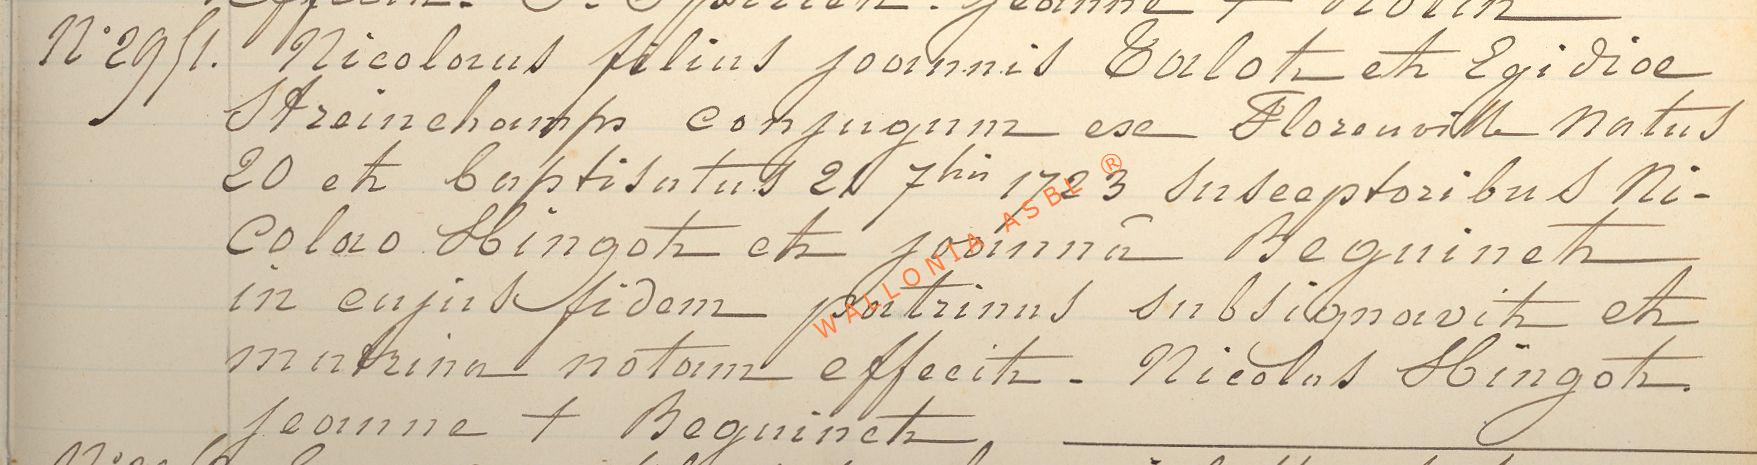 effecit. Jeanne + Violin
N° 2951. Nicolaus filius joannis Talot et Egidiae
Streinchamps conjugum ex Florenville natus
20 et baptisatus 21 7bris 1723 susceptoribus Ni-
colao Hingot et joannâ Beguinet
in cujus fidem patrinus subsignavit et
matrina notam effecit - Nicolas Hingot.
jeanne + Beguinet
WALLONIA ASBL ®